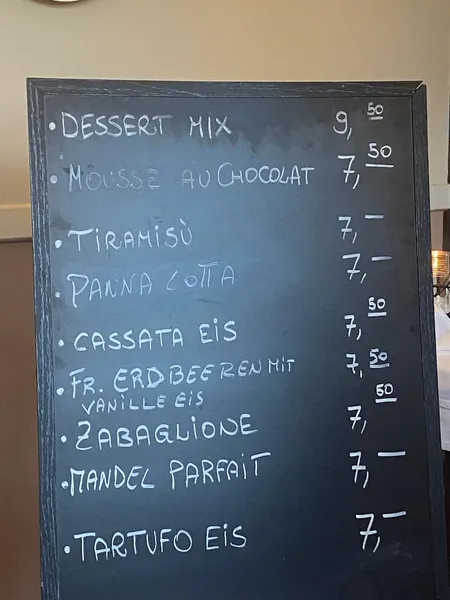 • DESSERT MIX 9,50
• MOUSSE AU CHOCOLAT 7,50
• TIRAMISÙ 7,–
• PANNA COTTA 7,–
• CASSATA EIS 7,50
• FR. ERDBEEREN MIT 7,50
VANILLE EIS
• ZABAGLIONE 7,50
• MANDEL PARFAIT 7,–
• TARTUFO EIS 7,–